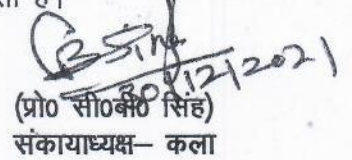 है।
CBSingh
30/12/2021
(प्रो० सी०बी० सिंह)
संकायाध्यक्ष– कला